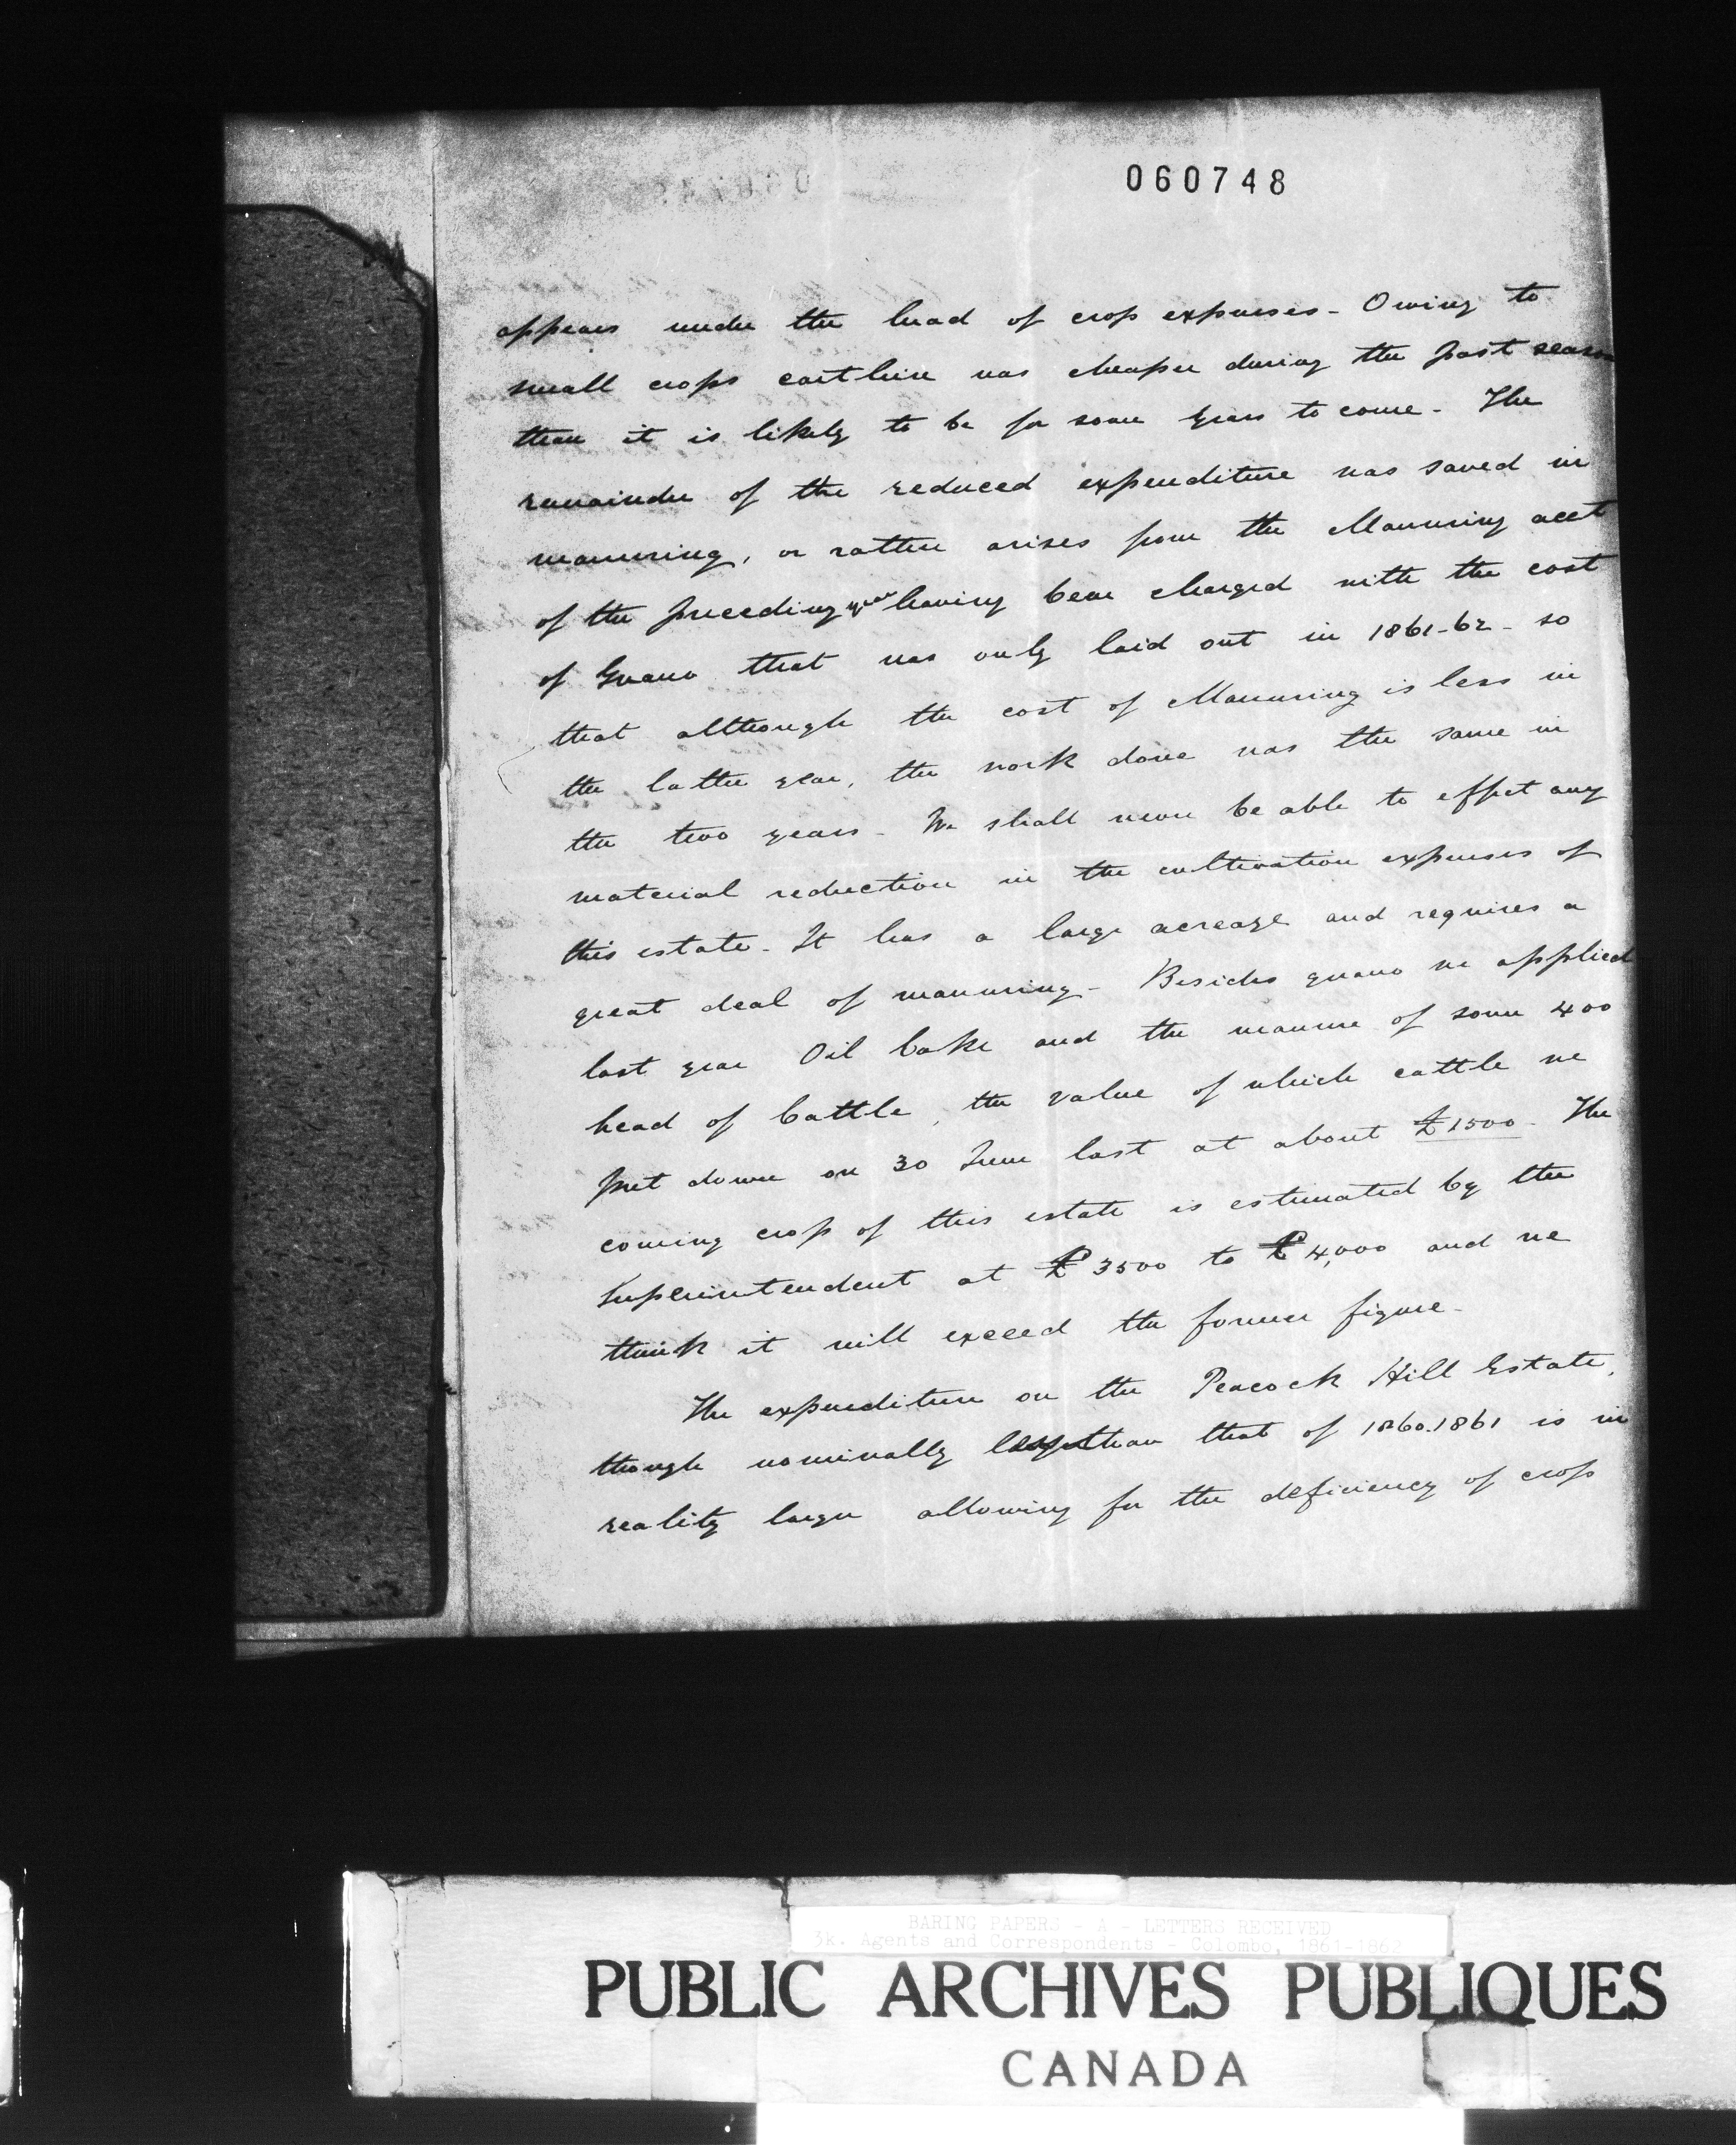 060748
appears under the head of crop expenses - Owing to
small crops cart hire was cheaper during the past season
than it is likely to be for some years to come - The
remainder of the reduced expenditure was saved in
manuring, or rather arises from the Manuring acct
of the preceding year having been charged with the cost
of Guano that was only laid out in 1861-62 - so
that although the cost of Manuring is less in
the latter year, the work done was the same in
the two years - We shall never be able to effect any
material reduction in the cultivation expenses of
this estate - It has a large acreage and requires a
great deal of manuring - Besides guano we applied
last year Oil Cake and the manure of some 400
head of Cattle, the value of which cattle we
put down on 30 June last at about £1500 - The
coming crop of this estate is estimated by the
Superintendent at £3500 to £4,000 and we
think it will exceed the former figure -
The expenditure on the Peacock Hill Estate,
though nominally less than that of 1860.1861 is in
reality larger allowing for the deficiency of crop
BARING PAPERS - A - LETTERS RECEIVED
3k. Agents and Correspondents - Colombo, 1861-1862
PUBLIC ARCHIVES PUBLIQUES
CANADA